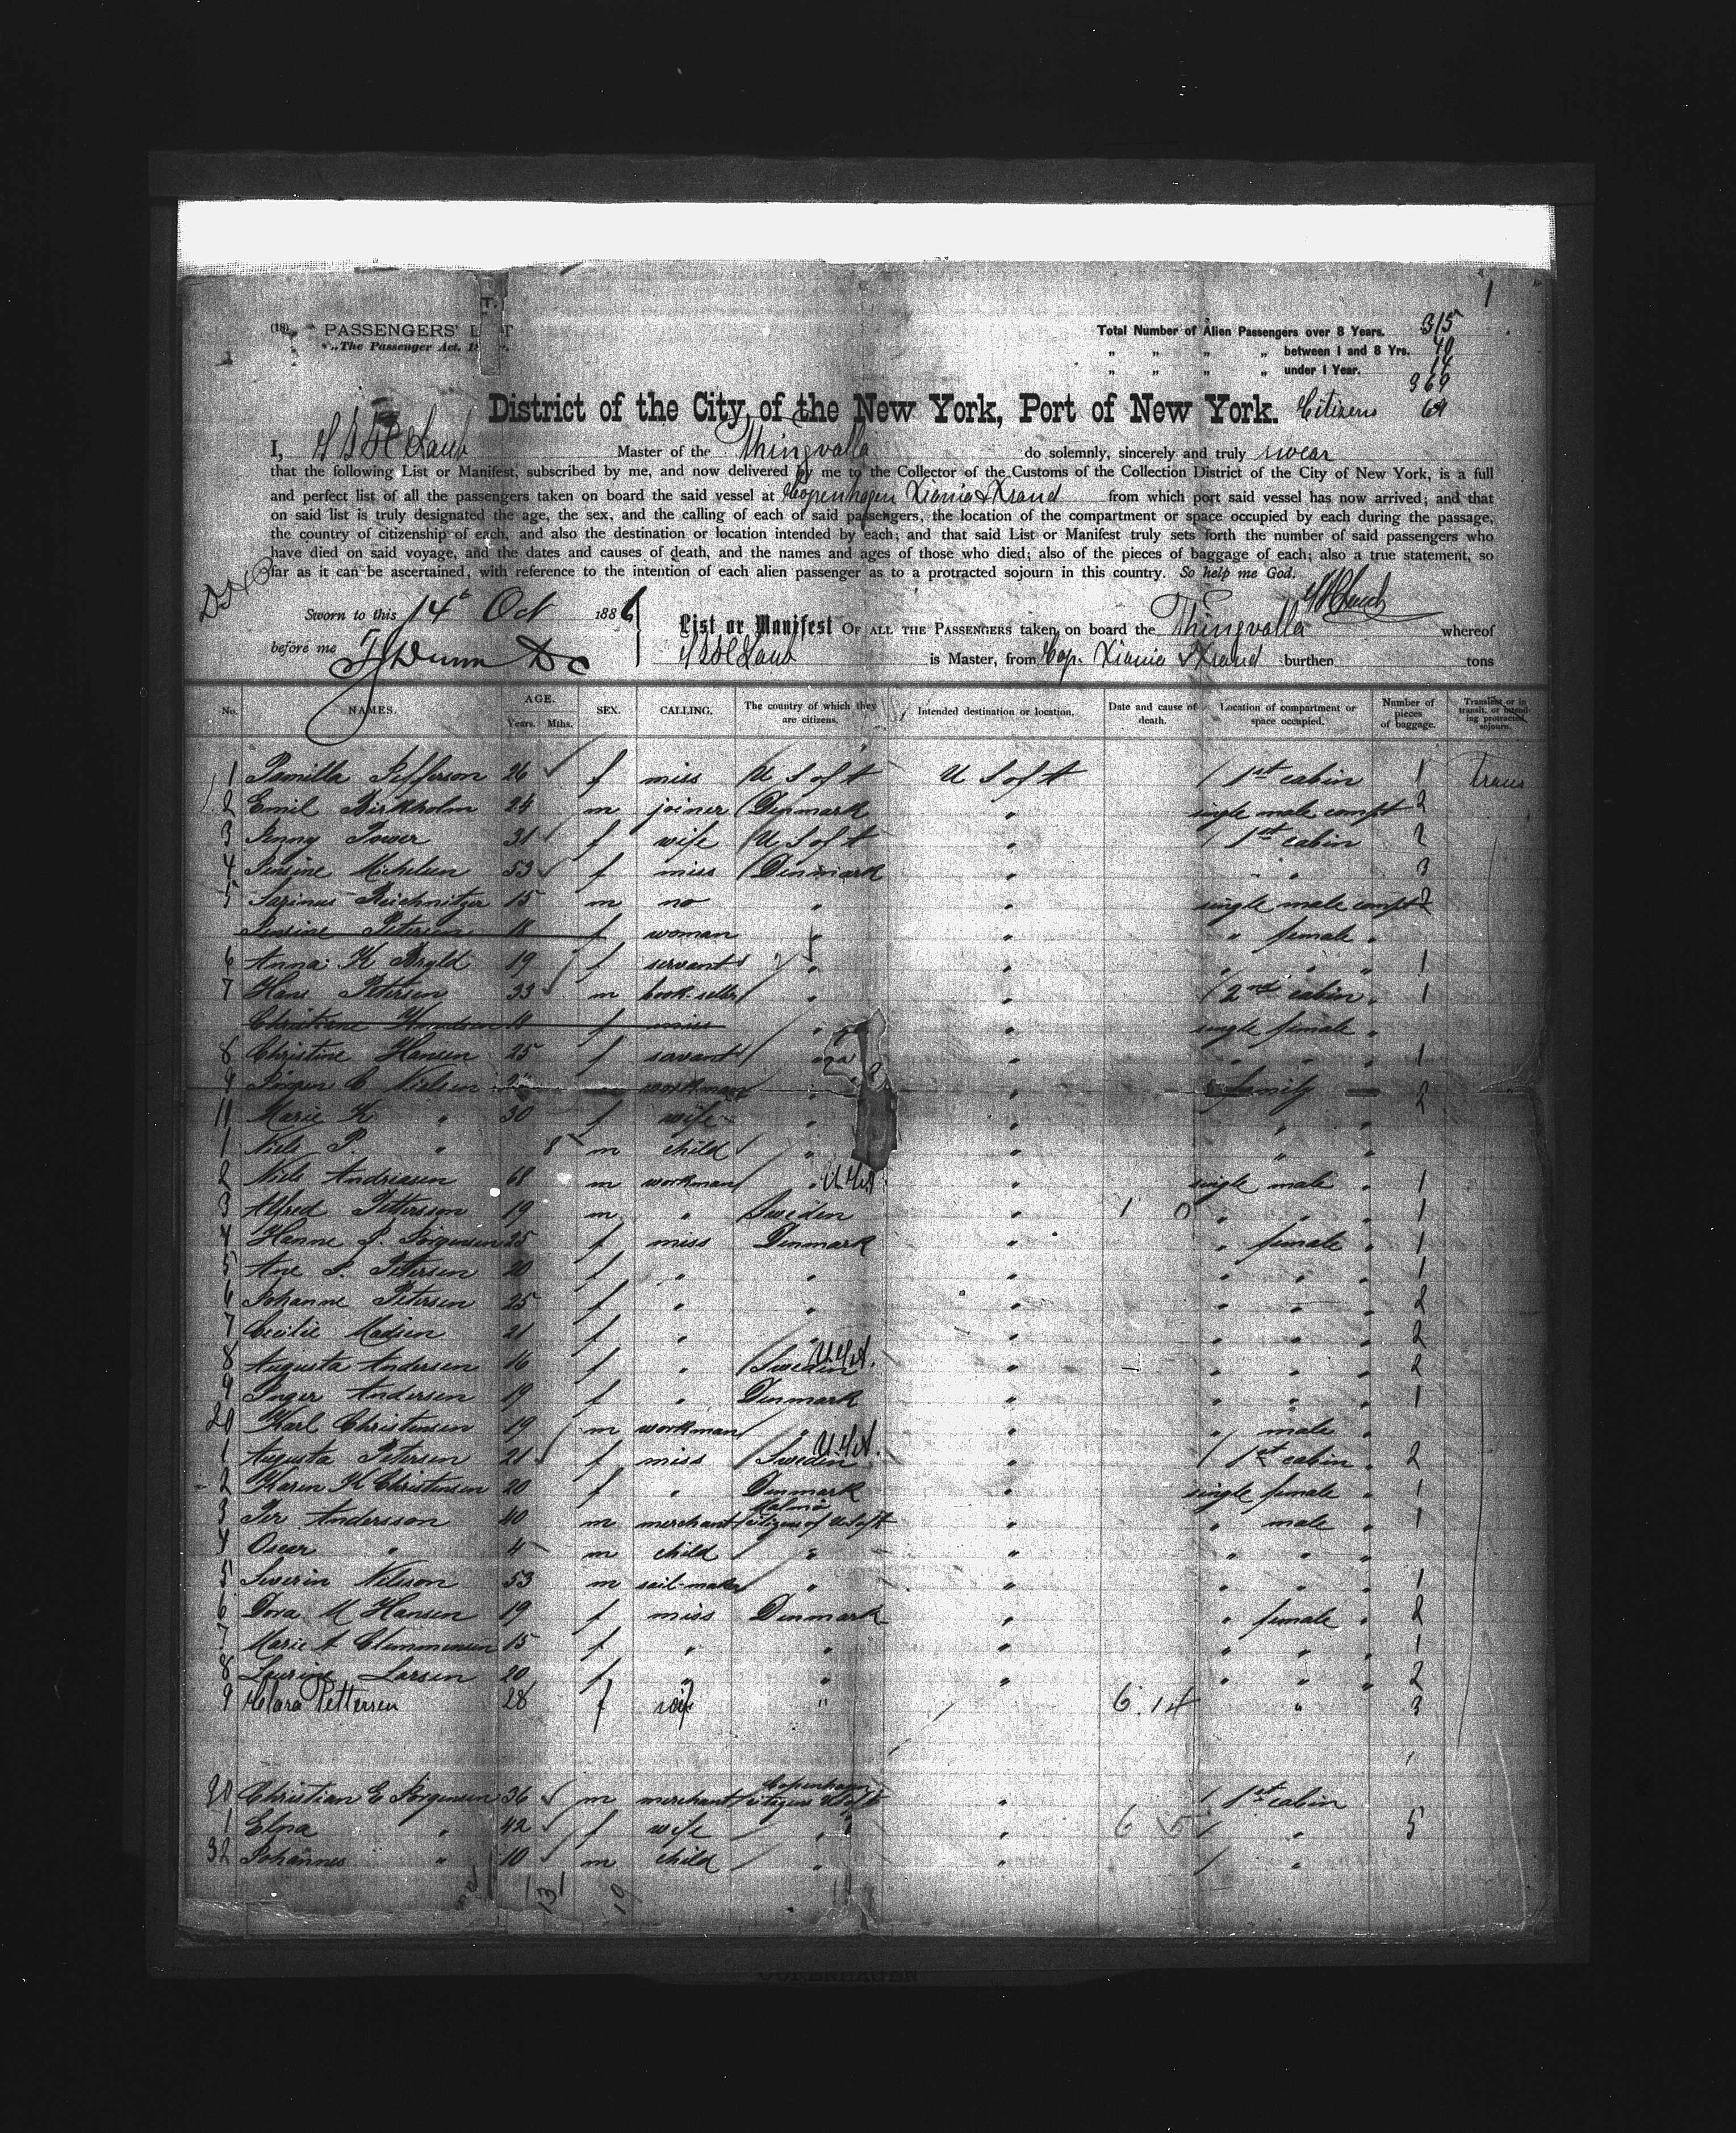 1
(18) PASSENGERS' L T
The Passenger Act. 18
Total Number of Alien Passengers over 8 Years. 315
„ „ „ „ between 1 and 8 Yrs. 40
„ „ „ „ under 1 Year. 14
369
District of the City of the New York, Port of New York. Citizens 64
I, Laub Master of the Thingvalla do solemnly, sincerely and truly swear
that the following List or Manifest, subscribed by me, and now delivered by me to the Collector of the Customs of the Collection District of the City of New York, is a full
and perfect list of all the passengers taken on board the said vessel at Copenhagen Xiania & Xsand from which port said vessel has now arrived; and that
on said list is truly designated the age, the sex, and the calling of each of said passengers, the location of the compartment or space occupied by each during the passage,
the country of citizenship of each, and also the destination or location intended by each; and that said List or Manifest truly sets forth the number of said passengers who
have died on said voyage, and the dates and causes of death, and the names and ages of those who died; also of the pieces of baggage of each; also a true statement, so
far as it can be ascertained, with reference to the intention of each alien passenger as to a protracted sojourn in this country. So help me God.
Sworn to this 14th Oct 1886
List or Manifest OF ALL THE PASSENGERS taken on board the Thingvalla whereof
before me Dunn Laub is Master, from Cop. Xiania & Xsand burthen tons
No. NAMES. AGE. Years. Mths. SEX. CALLING. The country of which they are citizens. Intended destination or location. Date and cause of death. Location of compartment or space occupied. Number of pieces of baggage. Transient or in transit, or intending protracted sojourn.
1 Pamilla Jefferson 26 f miss U S of A U S of A 1st cabin 1 trans
2 Emil Birkholm 24 m joiner Denmark „ single male compt 2
3 Jenny Power 31 f wife U S of A „ 1st cabin 2
4 Jensine Michelsen 53 f miss Denmark „ „ „ 3
5 Reichnitzer 15 m no „ „ single male compt 2
Jensine Petersen 18 f woman „ „ „ female „
6 Anna K Bryld 19 f servant „ „ „ „ „ 1
7 Hans Petersen 33 m book-seller „ „ 2nd cabin „ 1
Christiane f miss „ „ single female „
8 Christine Hansen 25 f servant „ „ „ „ „ 1
9 Jörgen C Nielsen workman „ „ family 2
11 Marie K „ 30 f wife „ „ „ „
1 Niels P. „ 8 m child „ „ „ „
2 Niels Andreasen 68 m workman „ U.S.A. „ single male „ 1
3 Alfred Pettersson 19 m „ Sweden „ 1 0 „ „ „ 1
4 Hanne J. Jörgensen 25 f miss Denmark „ „ female „ 1
5 Ane P. Petersen 20 f „ „ „ „ „ „ 1
6 Johanne Petersen 25 f „ „ „ „ „ „ 2
7 Cecilie Madsen 21 f „ „ „ „ „ „ 2
8 Augusta Andersen 16 f „ Sweden U.S.A. „ „ „ „ 2
9 Inger Andersen 19 f „ Denmark „ „ „ „ 1
20 Karl Christensen 19 m workman „ „ „ male „
1 Augusta Petersen 21 f miss Sweden U.S.A. „ 1st cabin „ 2
2 Karen K Christensen 20 f „ Denmark „ single female „ 1
3 Per Andersson 40 m merchant Malmö citizens of U S of A „ „ male „ 1
4 Oscar „ 4 m child „ „ „ „ „
5 Severin Nilsson 53 m sail-maker „ „ „ „ „ 1
6 Dora M Hansen 19 f miss Denmark „ „ female „ 2
7 Marie A Clemmensen 15 f „ „ „ „ „ „ 1
8 Laurine Larsen 20 f „ „ „ „ „ „ 2
9 Clara Pettersen 28 f wife „ 6.14 „ 3
20 Christian E Jörgensen 36 m merchant Copenhagen citizens U S of A „ 1st cabin
1 Elna „ 42 f wife „ „ 6 „ 5
32 Johannes „ 10 m child „ „ „